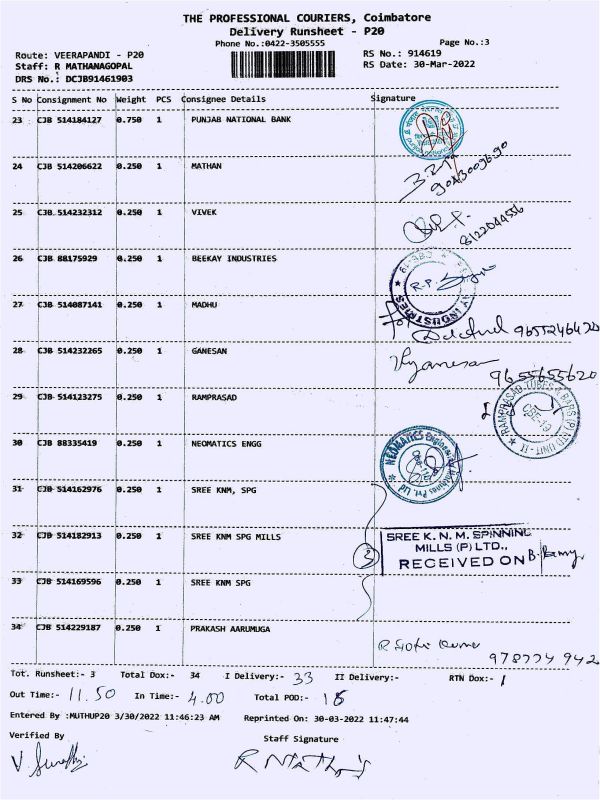 THE PROFESSIONAL COURIERS, Coimbatore
Delivery Runsheet - P20
Phone No.:0422-3505555
Page No.:3
Route: VEERAPANDI - P20
RS No.: 914619
Staff: R MATHANAGOPAL
RS Date: 30-Mar-2022
DRS No.: DCJB91461903
S No Consignment No Weight PCS Consignee Details Signature
23 CJB 514184127 0.750 1 PUNJAB NATIONAL BANK
24 CJB 514206622 0.250 1 MATHAN
25 CJB 514232312 0.250 1 VIVEK
8122044556
26 CJB 88175929 0.250 1 BEEKAY INDUSTRIES
R.P.
27 CJB 514087141 0.250 1 MADHU
9655246420
28 CJB 514232265 0.250 1 GANESAN
9655655620
29 CJB 514123275 0.250 1 RAMPRASAD
RAMPRASAD TUBES & BARS (P) LTD UNIT-II
CBE-19
30 CJB 88335419 0.250 1 NEOMATICS ENGG
31 CJB 514162976 0.250 1 SREE KNM, SPG
32 CJB 514182913 0.250 1 SREE KNM SPG MILLS
3
SREE K. N. M. SPINNING
MILLS (P) LTD.,
RECEIVED ON
33 CJB 514169596 0.250 1 SREE KNM SPG
34 CJB 514229187 0.250 1 PRAKASH AARUMUGA
978774 942
Tot. Runsheet:- 3 Total Dox:- 34 I Delivery:- 33 II Delivery:- RTN Dox:- 1
Out Time:- 11.50 In Time:- 4.00 Total POD:- 18
Entered By :MUTHUP20 3/30/2022 11:46:23 AM Reprinted On: 30-03-2022 11:47:44
Verified By Staff Signature